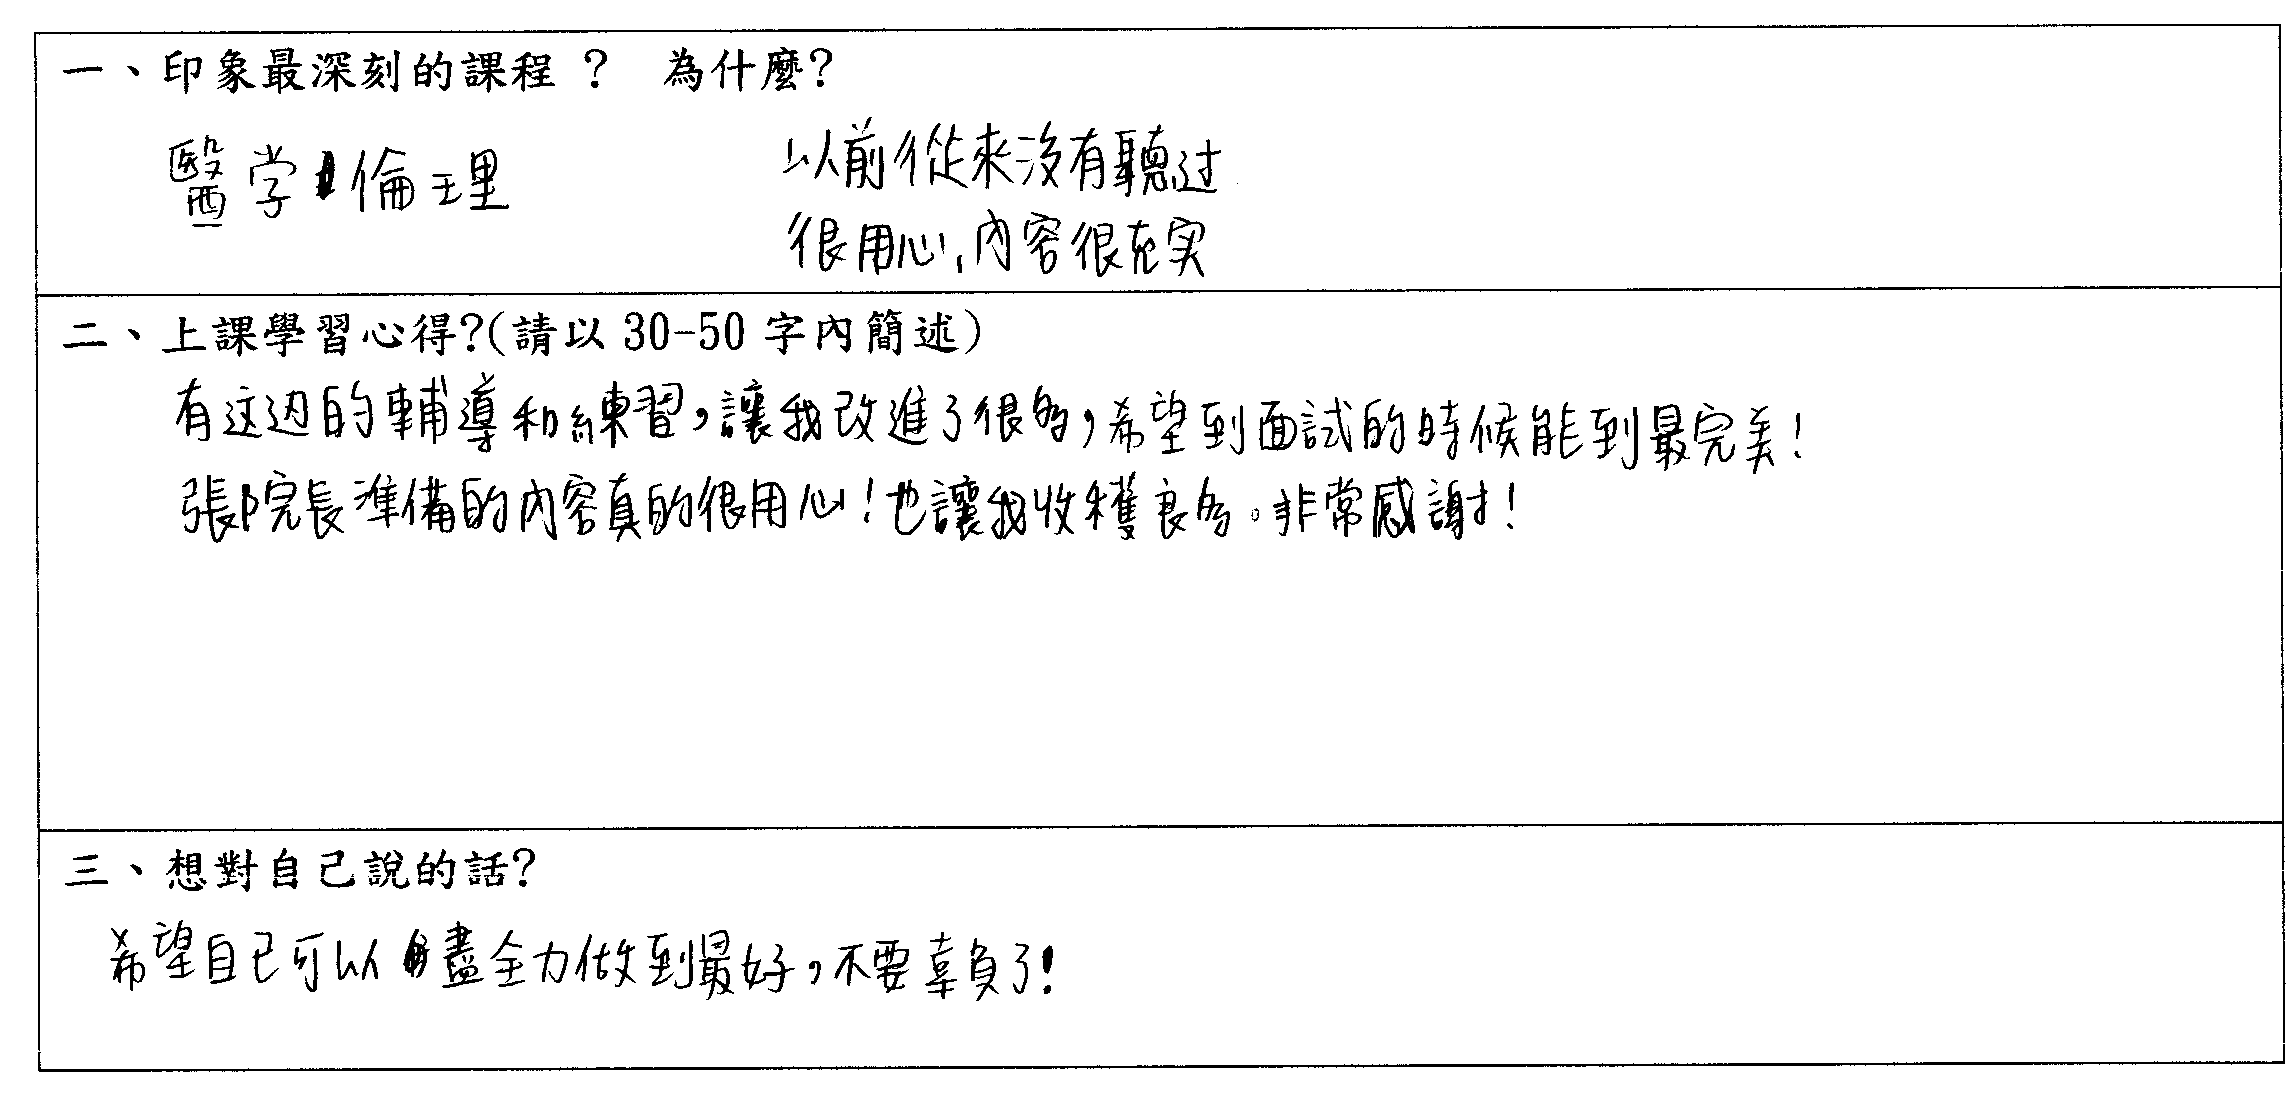 一、印象最深刻的課程 ? 為什麼?
醫学倫理
以前從來沒有聽过
很用心,內容很充实
二、上課學習心得?(請以 30-50 字內簡述)
有这边的輔導和練習,讓我改進了很多,希望到面試的時候能到最完美!
張院長準備的內容真的很用心!也讓我收穫良多。非常感謝!
三、想對自己說的話?
希望自己可以盡全力做到最好,不要辜負了!